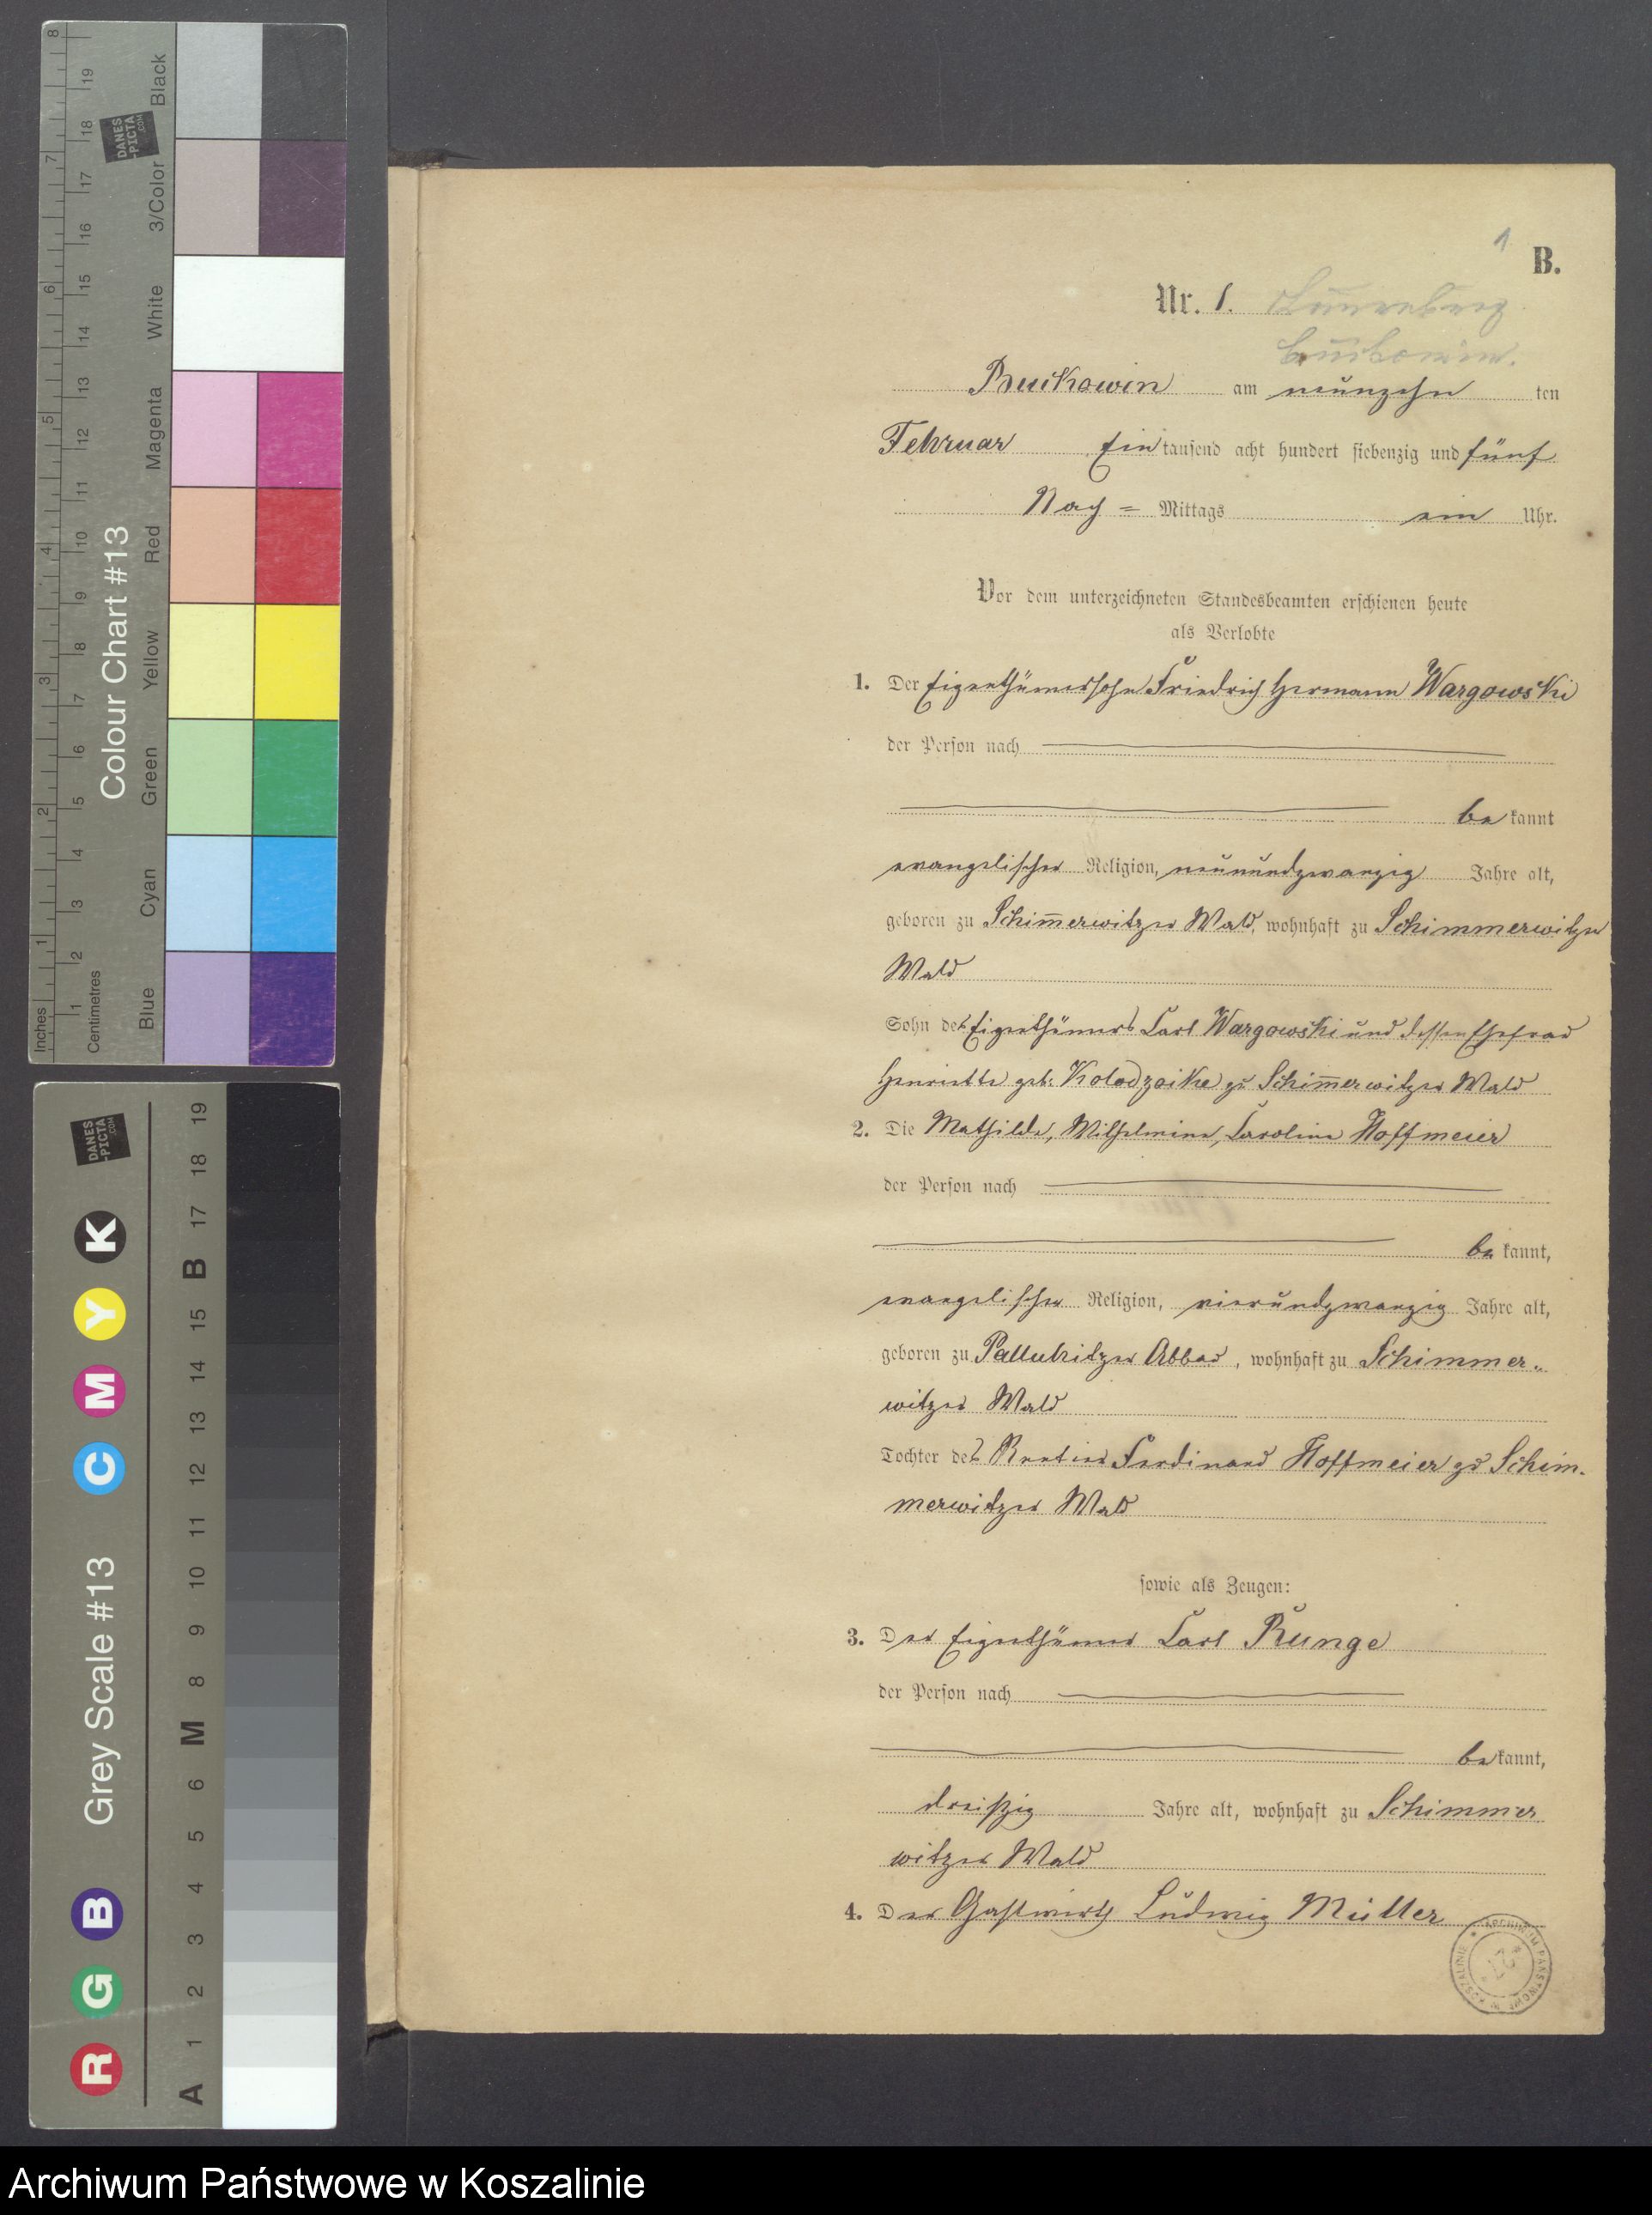 1
B.
Nr. 1. Lauenburg
Buckowin.
Buckowin am neunzehn ten
Februar Ein tausend acht hundert siebenzig und fünf
Nach = Mittags ein Uhr.
Vor dem unterzeichneten Standesbeamten erschienen heute
als Verlobte
1. Der Eigenthümersohn Friedrich Hermann Wargowski
der Person nach
be kannt
evangelischer Religion, neunundzwanzig Jahre alt,
geboren zu Schim̅erwitzer Wald, wohnhaft zu Schimmerwitzer
Wald
Sohn des Eigenthümers Carl Wargowski und dessen Ehefrau
Henriette geb. Kolodzeike zu Schim̅erwitzer Wald
2. Die Mathilde, Wilhelmine, Caroline Hoffmeier
der Person nach
be kannt,
evangelischer Religion, vierundzwanzig Jahre alt,
geboren zu Pallubitzer Abbau, wohnhaft zu Schimmer-
witzer Wald
Tochter des Rentier Ferdinand Hoffmeier zu Schim-
merwitzer Wald
sowie als Zeugen:
3. Der Eigenthümer Carl Runge
der Person nach
be kannt,
dreißig Jahre alt, wohnhaft zu Schimmer
witzer Wald
4. Der Gastwirth Ludwig Müller
ARCHIWUM PAŃSTWOWE W KOSZALINIE
Inches 1 2 3 4 5 6 7 8
Centimetres 1 2 3 4 5 6 7 8 9 10 11 12 13 14 15 16 17 18 19
Colour Chart #13
Blue Cyan Green Yellow Red Magenta White 3/Color Black
DANES
-PICTA
.COM
Grey Scale #13
R G B C M Y K
A 1 2 3 4 5 6 M 8 9 10 11 12 13 14 15 B 17 18 19
DANES
-PICTA
.COM
Archiwum Państwowe w Koszalinie